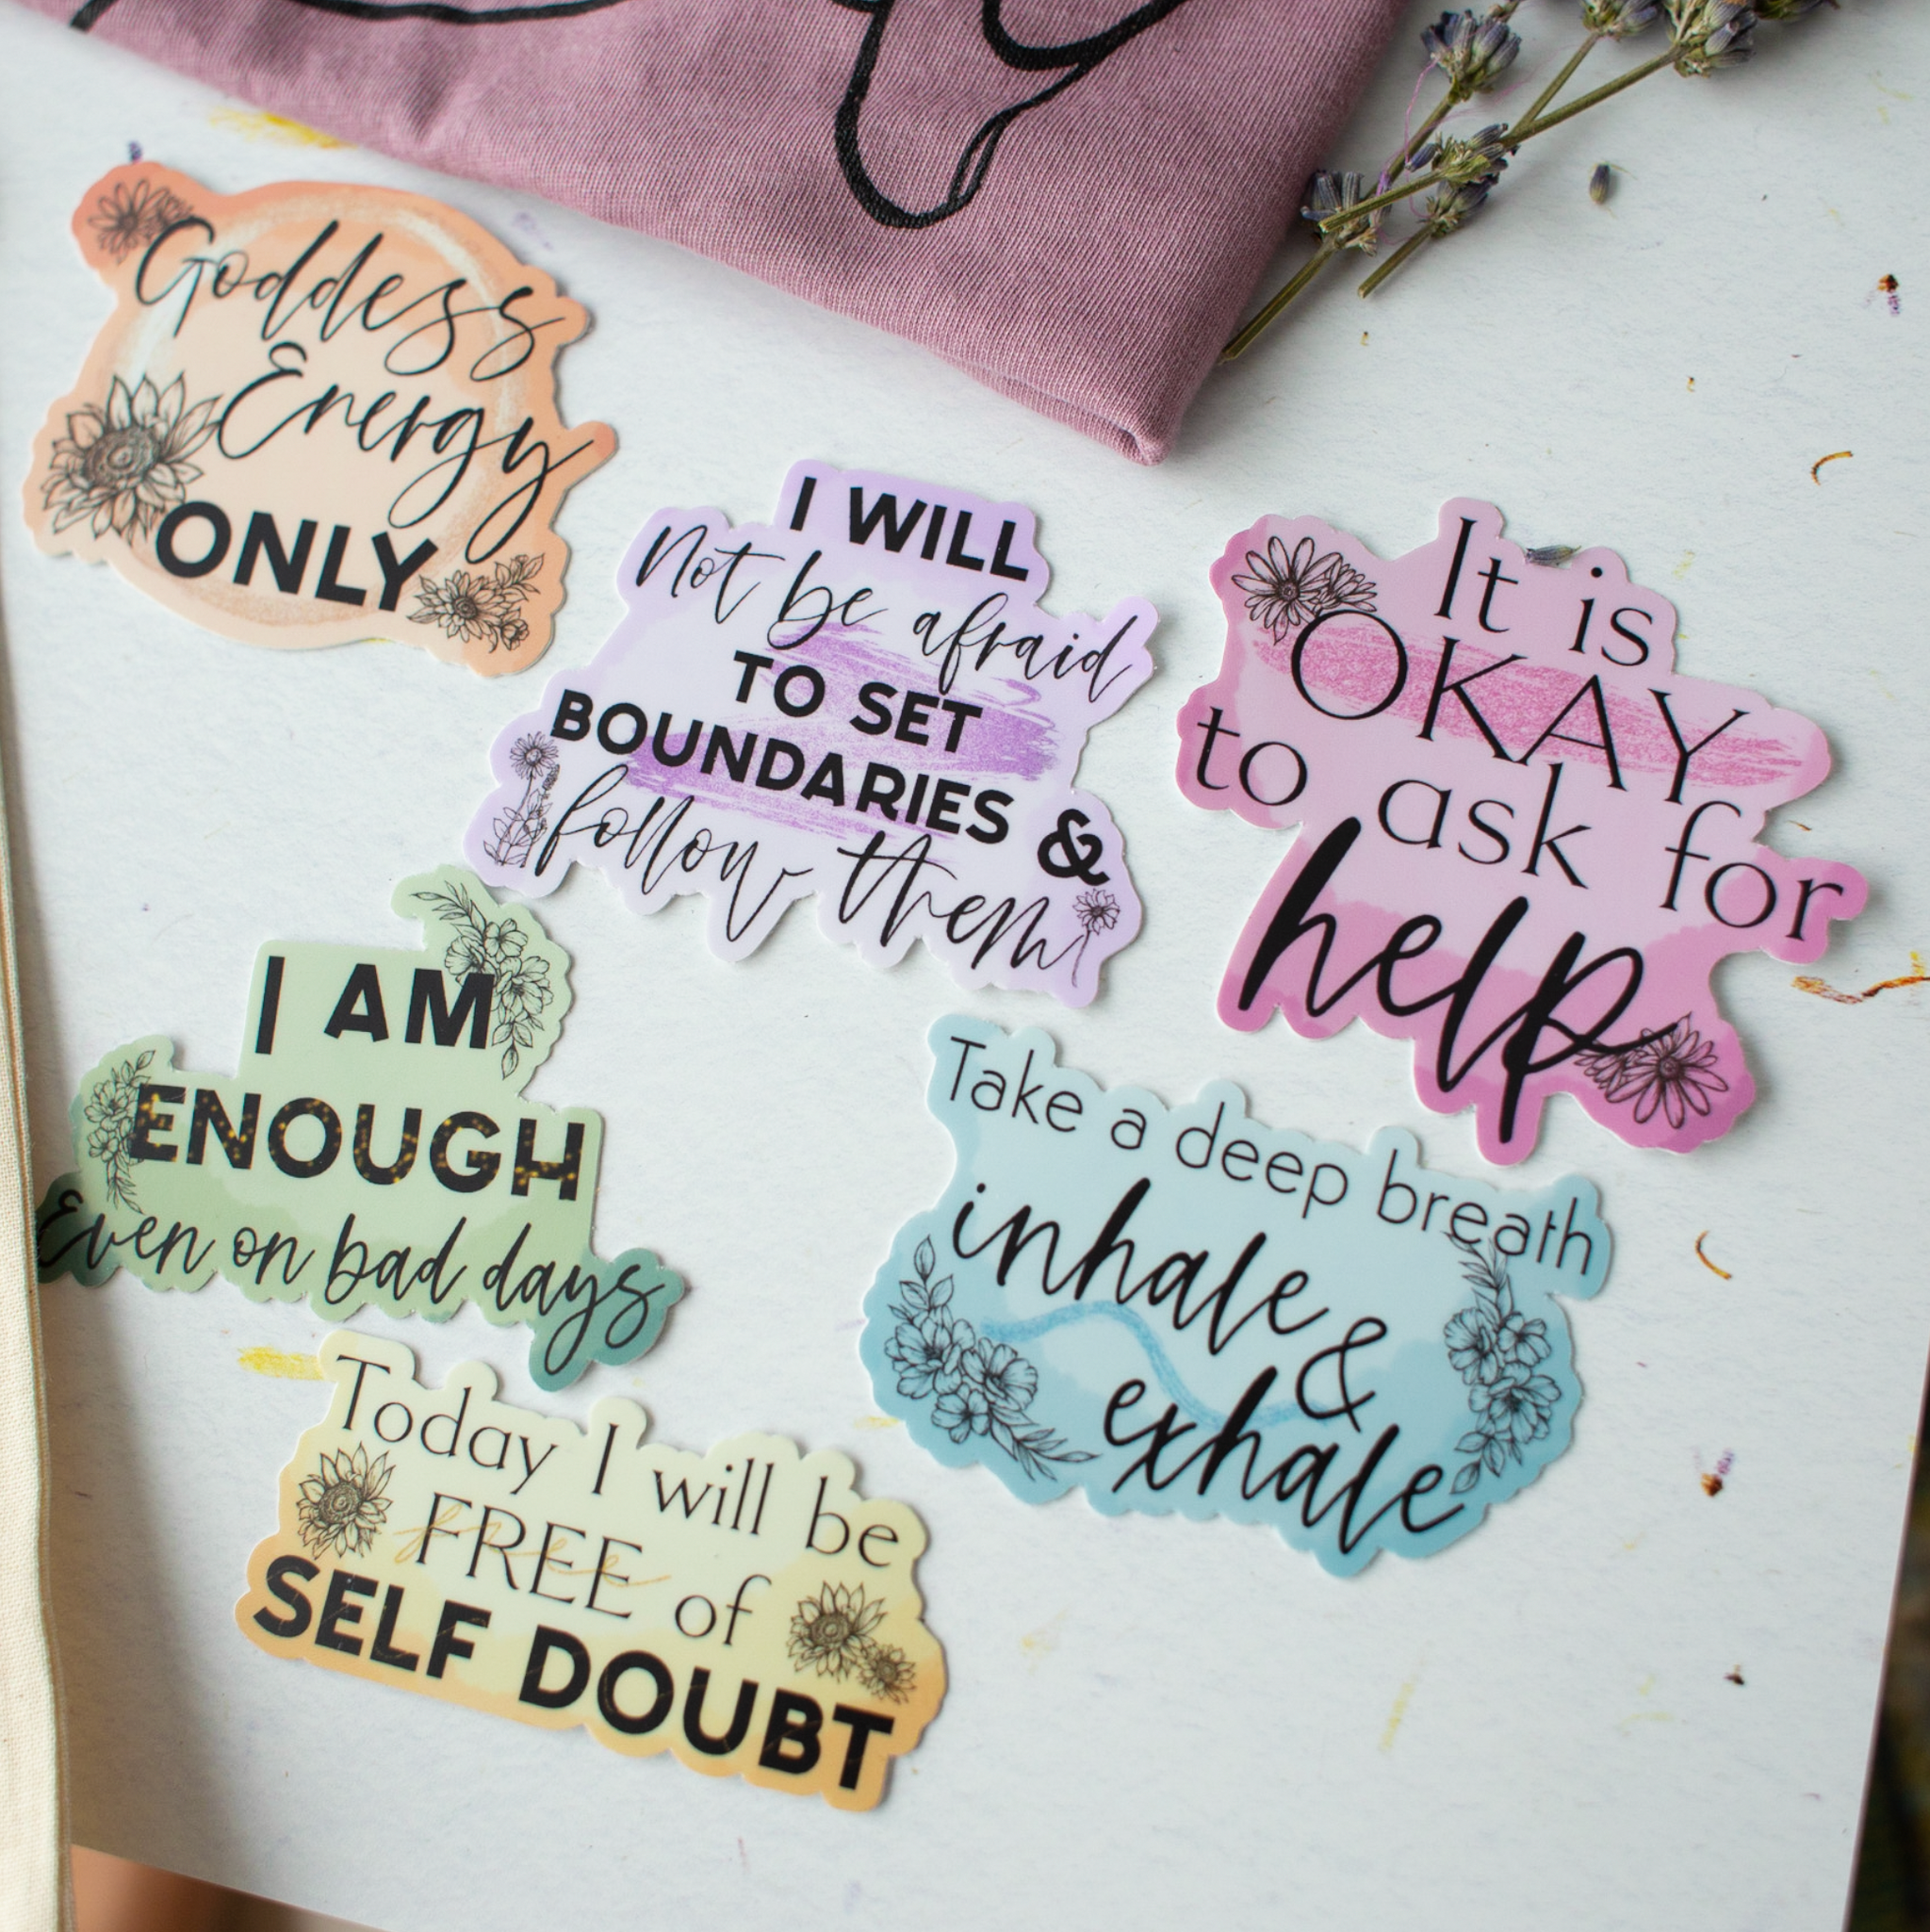 Goddess
Energy
ONLY
I WILL
Not be afraid
TO SET
BOUNDARIES &
follow them
It is
OKAY
to ask for
help
I AM
ENOUGH
Even on bad days
Take a deep breath
inhale &
exhale
Today I will be
FREE of
SELF DOUBT